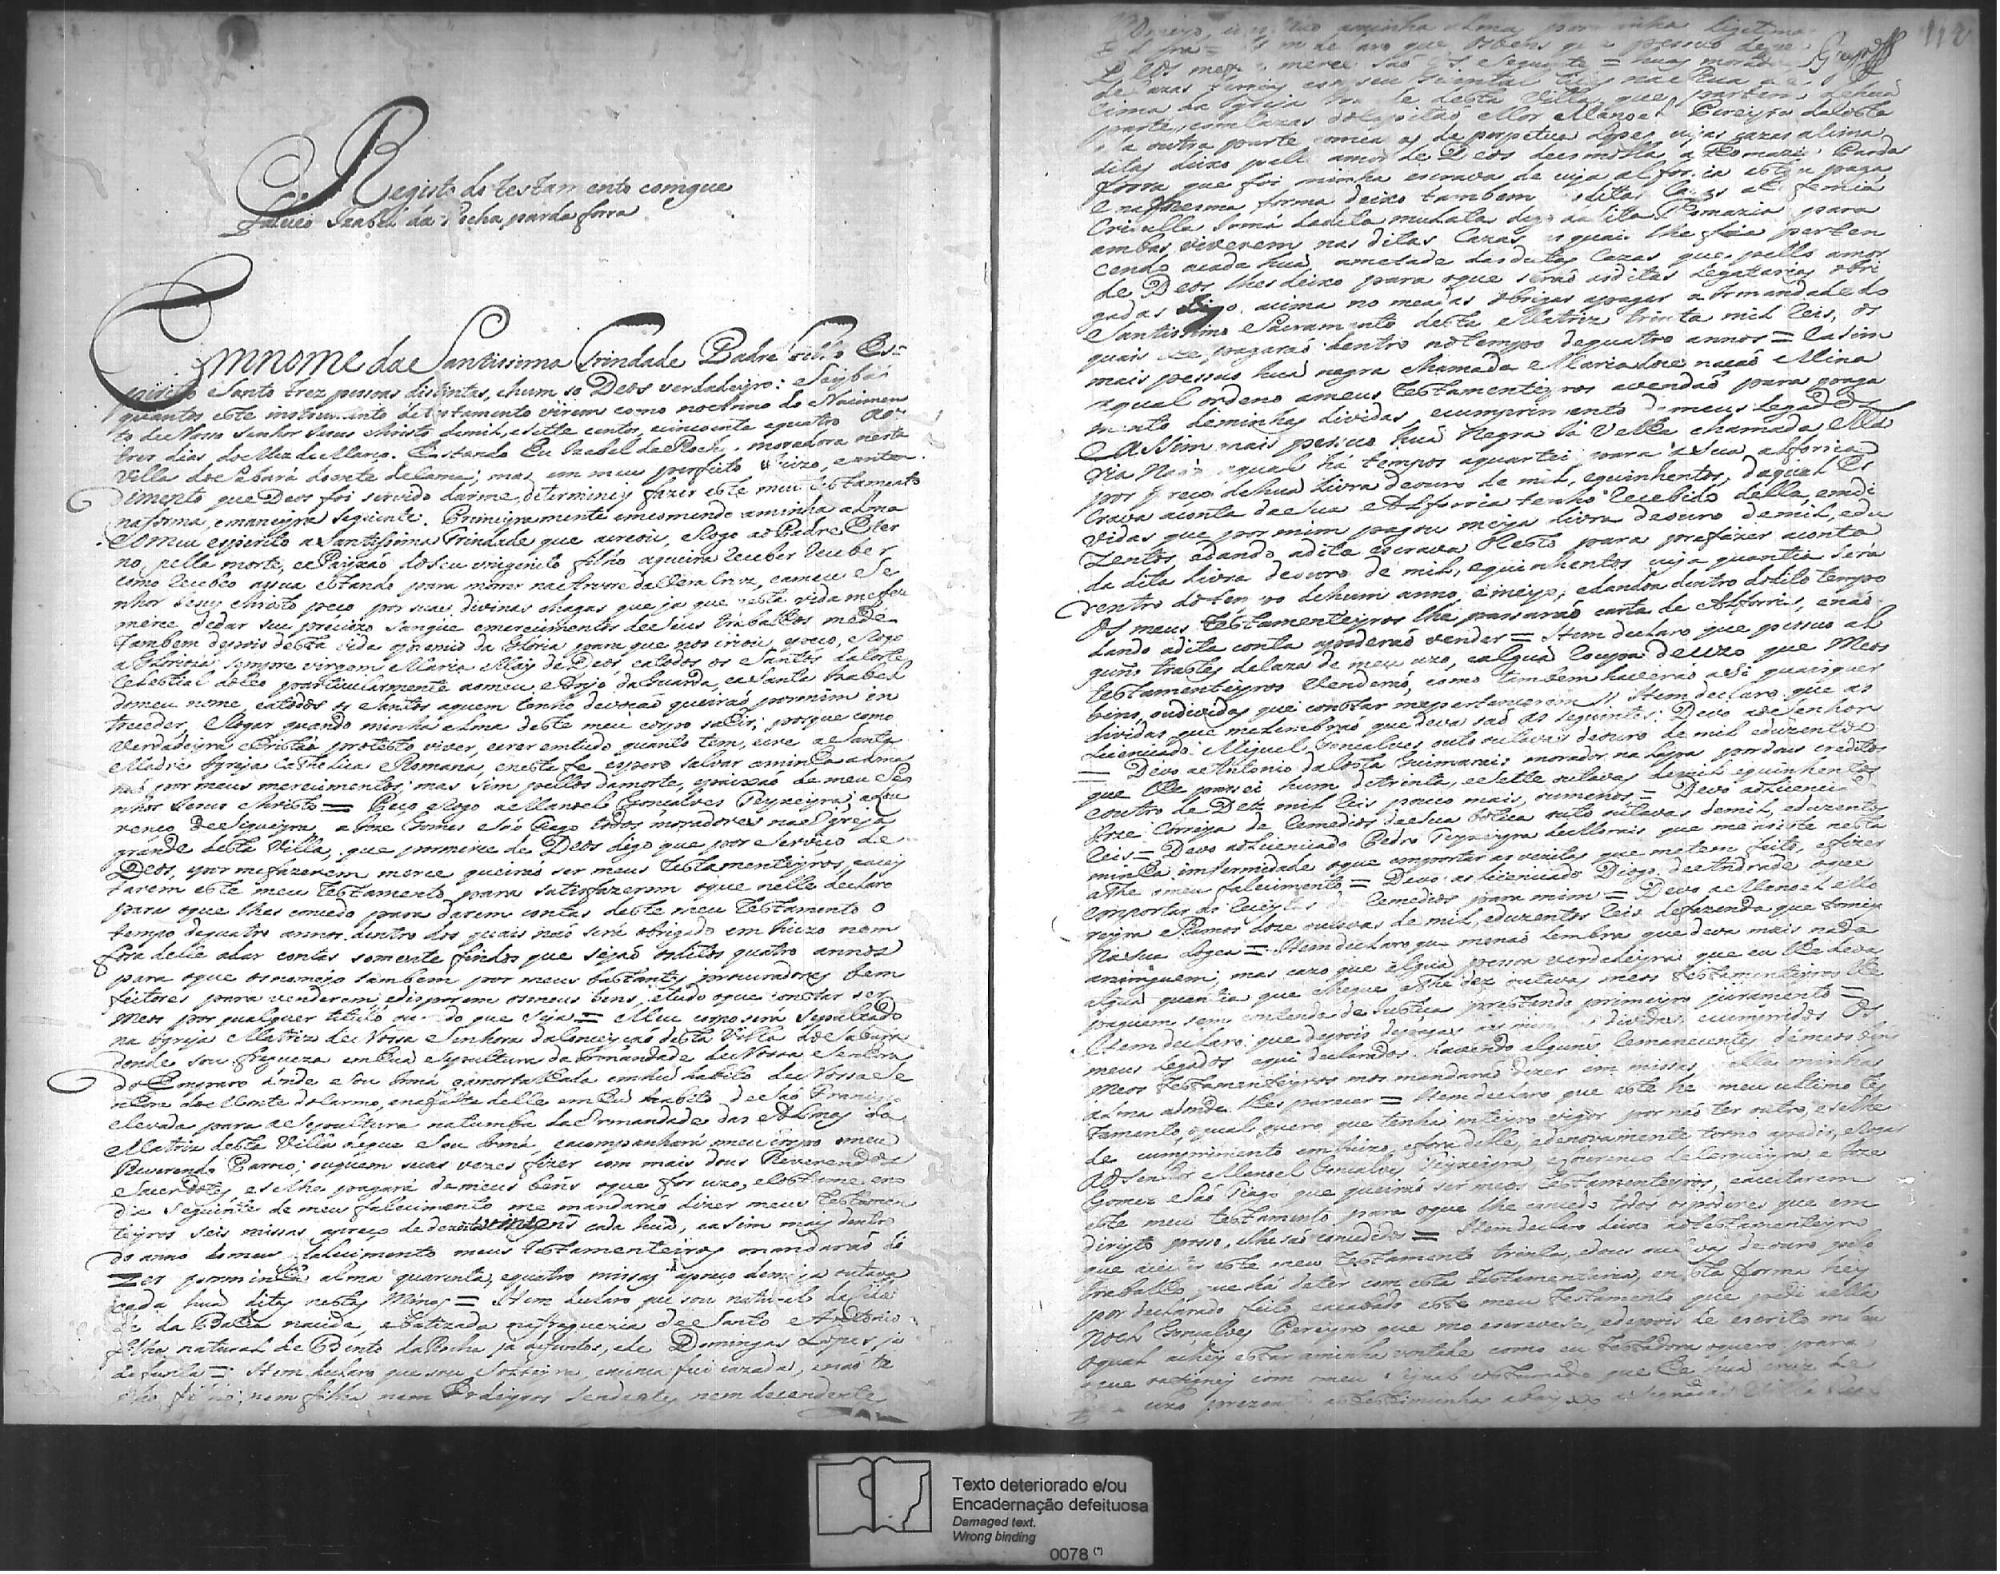 Registo do testamento comque
faleceo Izabel da Rocha parda forra
Em nome da Santissima Trindade Padre Filho Es=
pirito Santo trez pessoas distintas, ehum so Deos verdadeyro: Saybaõ
quantos este instrumento de testamento virem como noanno do Nacimen
to deNosso Senhor Jesus Christo demil, esette centos, ecincoenta equatro aos
trez dias doMez deMarço. Estando Eu Izabel da Rocha, moradora nesta
Villa doSabará doente delama; mas em meu perfeito Juizo, eenten
dimento que Deos foi servido darme, determiney fazer este meu testamento
naforma, emaneyra seguinte. Primeyramente emcomendo aminha alma
a Santissima Trindade que acreou, eRogo aoPadre Eter
no pella morte, ePayxaõ doSeu unigenito filho aqueira receber
como recebeo asua estando para morrer naArvore daVera Cruz, eameu Se
nhor Jesus Christo peço por suas divinas chagas que ja que nesta vida mefes
merce dedar seu preciozo sangue emerecimentos deSeus trabalhos mede
tambem depois desta vida opremio da Gloria para que nos criou, epeço, eRogo
a Glorioza sempre virgem Maria May de Deos eatodos os Santos daCorte
Celestial deCeo particularmente aomeu Anjo daGuarda, eaSanta Izabel
domeu nome, eatodos os Santos aquem tenho devoçaõ queiraõ pormim in
terceder, eRogar quando minha alma deste meu corpo sahir; porque como
verdadeyra Christaã protesto viver, ecrer emtudo quanto tem, ecre aSanta
Madre Igreja Catholica Romana, enesta fé espero salvar aminha alma
naõ por meus merecimentos; mas sim pellos damorte, epaixaõ de meu Se
nhor Jesus Christo = Peço, eRogo aManoel Gonçalves Teyxeyra; aLou
renço deSiqueyra, aJoze Gomes eSaõ Tiago todos moradores naIgreja
grande desta Villa, que por merce de Deos digo que por Serviço de
Deos, epor mefazerem merce queiraõ ser meus testamenteyros, eacey
tarem este meu testamento para satisfazerem oque nelle declaro
para oque lhes concedo para darem contas deste meu testamento o
tempo dequatro annos dentro dos quais naõ será obrigado em Juizo nem
fora delle adar contas somente findos que sejaõ osditos quatro annos
para oque osnomeyo tambem por meus bastantes procuradores, bem
feitores para venderem, edisporem osmeus bens, etudo oque constar ser
meos por qualquer titulo que seja = Meu corposerá Sepultado
na Igreja Matriz deNossa Senhora daConceyçaõ desta Villa doSabará
donde sou fregueza em huã sepultura daIrmandade deNossa Senhora
do Emparo donde Sou Irmã amortalhada emhum habito deNossa Se
nhora doMonte doCarmo, enafalta delle em hum habito deSaõ Francisco
elevada para aSepultura natumba daIrmandade das Almas da
Matriz desta Villa deque Sou Irmã, eacompanhará omeu Corpo omeu
Reverendo Paroco; ouquem suas vezes fizer com mais dous Reverendos
Sacerdotes, eselhe pagará demeus bens oque for uzo, eCostume, eno
dia Seguinte de meu falecimento me mandaraõ dizer meus testamen
teyros seis missas cada huã, eassim mais dentro
do anno domeu falecimento meus testamenteiros mandaraõ di
zer porminha alma quarenta, equatro missas apreço demeia outava
cada huã ditas nestas Minas = Item declaro que sou natural da Cida
de da Bahia naude, ebatizada nafreguezia deSanto Antonio
filha natural de Bento daRocha, ja defunto, ede Domingas Lopes, ja
defunta = Item declaro que sou Solteyra, enunca fui cazada, enaõ te
nho filho; nem filha nem Erdeyros Sendentes, nem decendentes
112
aminha alma por minha legitima
Item declaro que osbens que possuo
saõ os Seguintes = huas moradas
de cazas terreas com seu quintal citas naRua de
cima da Igreja grande desta Villa, que partem dehuã
parte, comCazas doCapitaõ Mor Manoel Pereyra daCosta
e da outra parte com as de perpetua Lopes, cujas cazas aSima
ditas deixo pelo amor de Deos deesmolla, a Romazia Parda
forra que foi minha escrava de cuja alforria estou paga
enaMesma forma deixo tambem as ditas Cazas aEufemia
Crioulla Irmã daditta mulata digo da ditta Romazia para
ambas viverem nas ditas Cazas lhe fica perten
cendo acada huã, ametade dasditas Cazas que pello amor
de Deos lhes deixo para oque seraõ asditas Legatarias obri
gadas digo acima nomeadas obrigas apagar a Irmandade do
Santissimo Sacramento desta Matriz trinta mil reis, os
quais pagaraõ dentro notempo dequatro annos = Easim
mais possuo huã negra chamada Maria de naçaõ Mina
aqual ordeno ameus testamenteyros avendaõ para paga
mento deminhas dividas, ecumprimento demeus legados
Assim mais possuo huã Negra já Velha chamada Ma
ria aqual há tempos aquartei para asua alforria
por preço dehuã livra deouro de mil, equinhentos, daqual Es
crava aconta daSua Alforria tenho Recebido della emdi
vidas que por mim pagou meya livra deouro demil, edu
zentos, edando adita escrava oResto para prefazer aconta
da dita livra deouro de mil, equinhentos, cuja quantia será
dentro dotempo dehum anno, emeyo, edandoa dentro doditto tempo
os meus testamenteyros lhe passaraõ carta de Alforria, enaõ
dando adita conta apoderaõ vender = Item declaro que possuo al
guns trastes deCaza de meu uzo, ealgua roupa deuzo que Meos
testamenteyros venderaõ, como tambem haveraõ asi quaisquer
bens, oudividas que constar mepertencerem // Item declaro que as
dividas que melembraõ que devo saõ as seguintes: Devo aoSenhor
Licenciado Miguel Gonçalves outo outavas deouro de mil eduzentos
= Devo aAntonio daCosta Guimarais morador na Lapa pordous creditos
que lhe passei hum detrinta, eSette outavas demil equinhentos
eoutro de Dez mil Reis pouco mais, oumenos = Devo
Joze Correya de Remedios daSua botica outo outavas demil, eduzentos
reis = Devo aoLicenciado Pedro Teyxeyra deMorais que measiste nesta
minha infermidade oque emportar as vizitas que metem feito, efizer
athe omeu falecimento = Devo ao Licenciado Diogo deAndrade oque
emportar as Receytas de Remedios para mim = Devo aManoel
Ramos doze outavas de mil, eduzentos reis defazenda que tomei
na Sua Logea = Item declaro que menaõ lembra que deva mais nada
aninguem; mas cazo que algua pessoa verdadeyra que eu lhe deva
algua quantia que chegue athe dez outavas meos testamenteyros lhe
paguem sem contenda de Justiça prestando primeyro juramento =
Item declaro que depois depagas as minhas dividas, ecumpridos os
meus legados aqui declarados, havendo alguns remanecentes demeos bens
meos testamenteyros mos mandaraõ dizer em missas pella minha
alma adonde lhes parecer = Item declaro que este he meu ultimo tes
tamento, oqual quero que tenha inteiro vigor por naõ ter outro, eselhe
de cumprimento emJuizo, efora delle, edenovamente torno apedir, eRogar
aoSenhor Manoel Gonçalves Teyxeyra, eLourenço deCerqueyra, e Joze
Gomes eSaõ Tiago que queiraõ ser meos testamenteyros, eaceitarem
este meu testamento para oque lhe concedo todos ospoderes que em
direyto posso, elhe saõ concedidos = Item declaro deixo aotestamenteyro
que aceitar este meu testamento trinta, edous outavas de ouro pelo
trabalho que há deter com esta testamentaria, enesta forma hey
por declarado feito, eacabado este meu testamento que pedi aMa
noel Gonçalves Pereyra que mo escrevese, edepois de escrito
oqual achey estar aminha vontade como eu testadora oquero para
oque oasigney com meu Signal costumado que he huã cruz de
que uzo prezentes astestimunhas abayxo asignadas Villa Real
Texto deteriorado e/ou
Encadernação defeituosa
Damaged text.
Wrong binding
0078 (*)